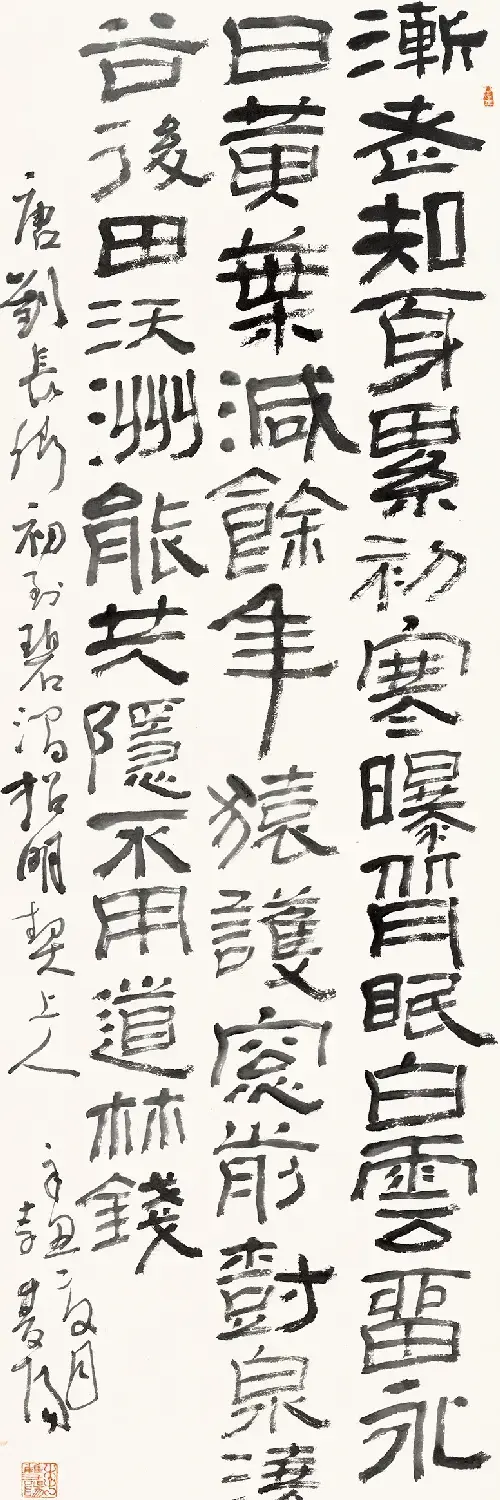 漸老知身累初寒曝背眠白雲畱永
日黃葉減餘年猿護窓前樹泉澆
谷後田沃洲能共隱不用道林錢
唐劉長卿初到碧澗招明契上人
辛丑